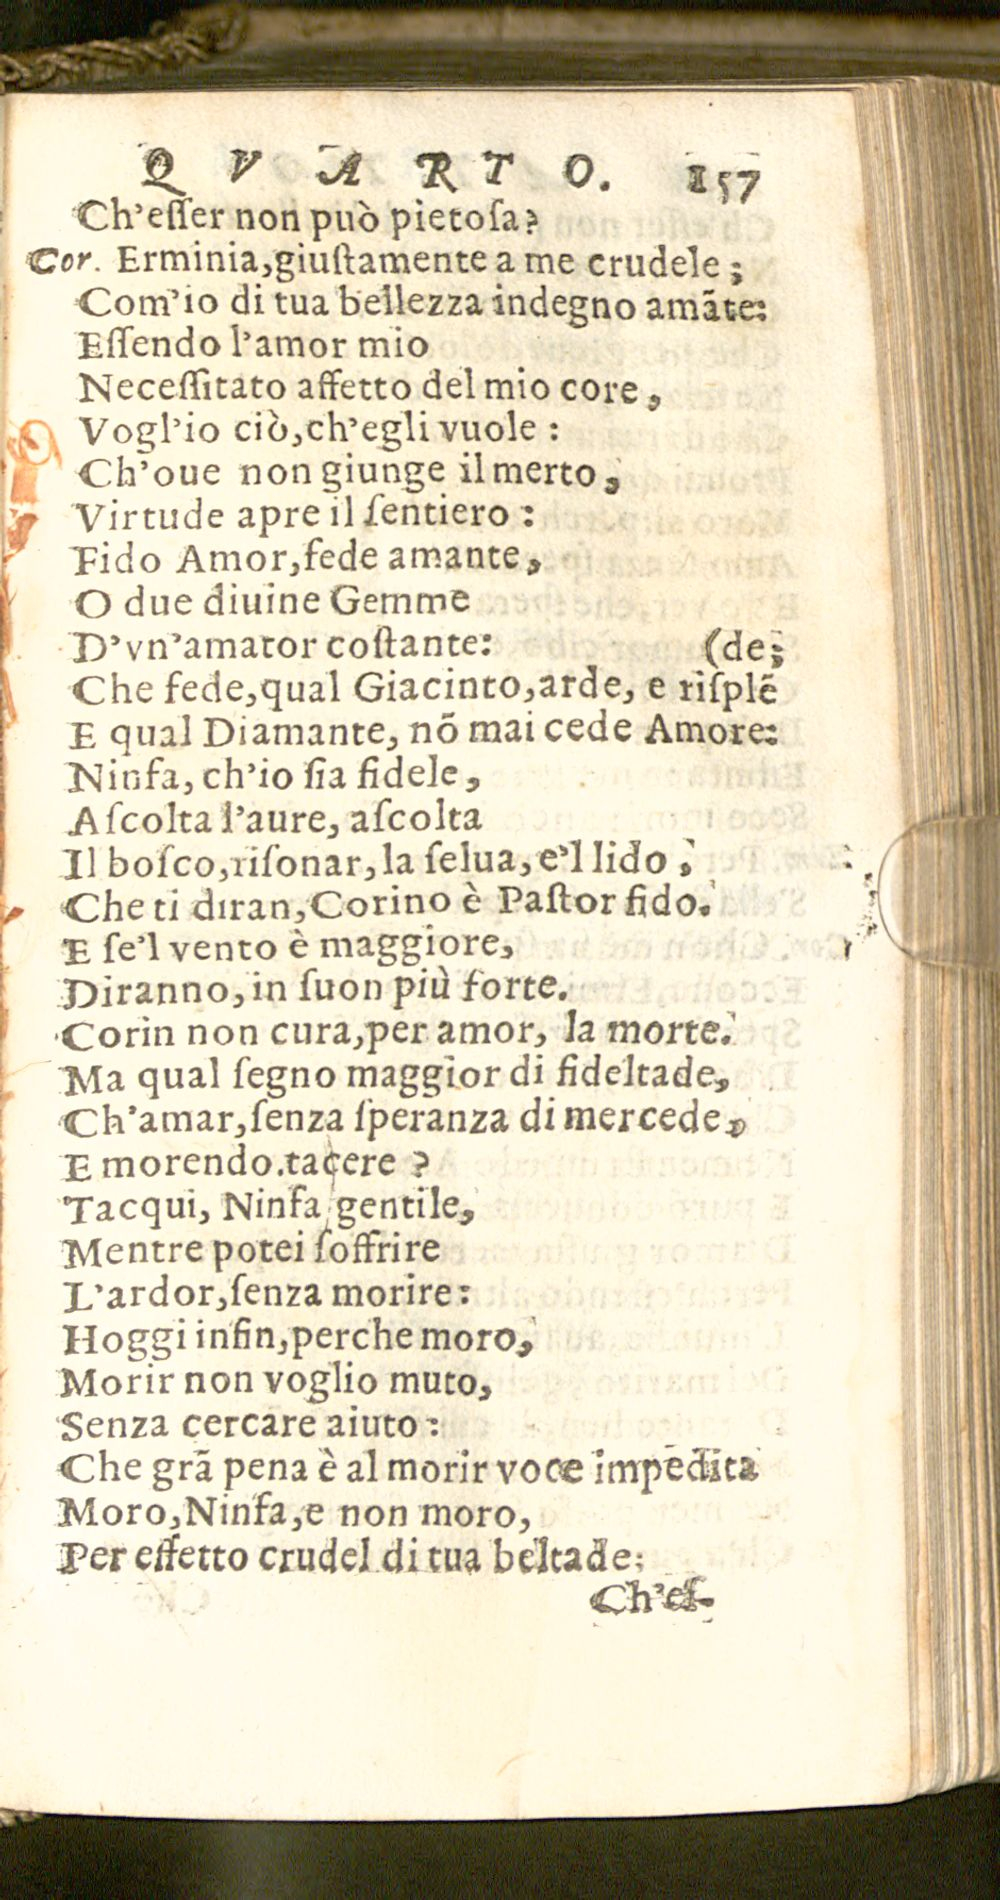 QVARTO. 157
Ch'eſſer non può pietoſa?
Cor. Erminia, giuſtamente a me crudele;
Com'io di tua bellezza indegno amãte:
Eſſendo l'amor mio
Neceſſitato affetto del mio core,
Vogl'io ciò, ch'egli vuole:
Ch'oue non giunge il merto,
Virtude apre il ſentiero:
Fido Amor, fede amante,
O due diuine Gemme
D'vn'amator coſtante: (de;
Che fede, qual Giacinto, arde, e riſplẽ
E qual Diamante, nõ mai cede Amore:
Ninfa, ch'io ſia fidele,
Aſcolta l'aure, aſcolta
Il boſco, riſonar, la ſelua, e'l lido;
Che ti diran, Corino è Paſtor fido.
E ſe'l vento è maggiore,
Diranno, in ſuon più forte.
Corin non cura, per amor, la morte.
Ma qual ſegno maggior di fideltade,
Ch'amar, ſenza ſperanza di mercede,
E morendo.tacere?
Tacqui, Ninfa gentile,
Mentre potei ſoffrire
L'ardor, ſenza morire:
Hoggi infin, perche moro,
Morir non voglio muto,
Senza cercare aiuto:
Che grã pena è al morir voce impedita
Moro, Ninfa, e non moro,
Per effetto crudel di tua beltade:
Ch'eſ-